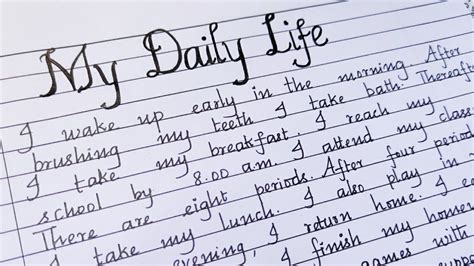 My Daily Life
I wake up early in the morning. After
brushing my teeth I take bath. Thereafter
I take my breakfast. I reach my
school by 8.00 am. I attend my class
There are eight periods. After four period
I take my lunch. I also play in
evening, I return home. I
I finish my home
games with